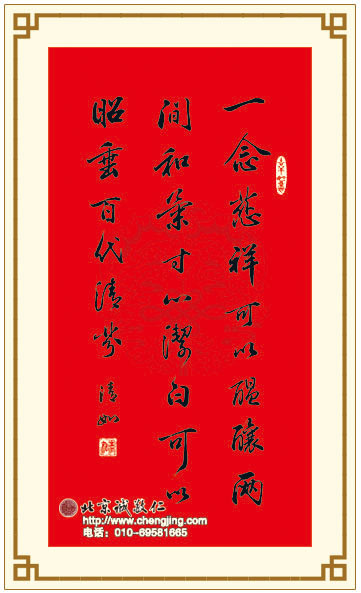 一念慈祥可以醖釀兩
間和氣寸心潔白可以
昭垂百代清芬
清如
北京诚敬仁
http://www.chengjing.com
电话：010-69581665